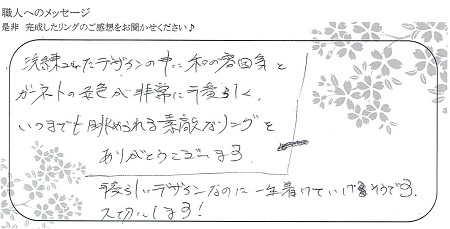 職人へのメッセージ
是非 完成したリングのご感想をお聞かせください♪
洗練されたデザインの中に和の雰囲気と
ガーネットの発色が非常に可愛らしく、
いつまでも眺められる素敵なリングを
ありがとうございます。
可愛らしいデザインなのに一生着けていけそうです。
大切にします!